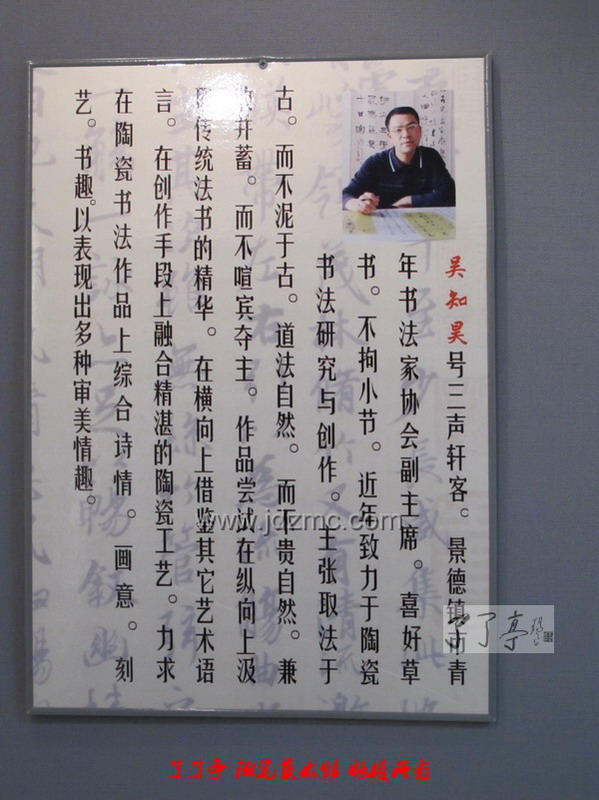 吴知昊号三声轩客。景德镇市青
年书法家协会副主席。喜好草
书。不拘小节。近年致力于陶瓷
书法研究与创作。主张取法于
古。而不泥于古。道法自然。而不贵自然。兼
收并蓄。而不喧宾夺主。作品尝试在纵向上汲
取传统法书的精华。在横向上借鉴其它艺术语
言。在创作手段上融合精湛的陶瓷工艺。力求
在陶瓷书法作品上综合诗情。画意。刻
艺。书趣。以表现出多种审美情趣。
www.jdzmc.com
了亭
了了亭 陶瓷美术馆 版权所有